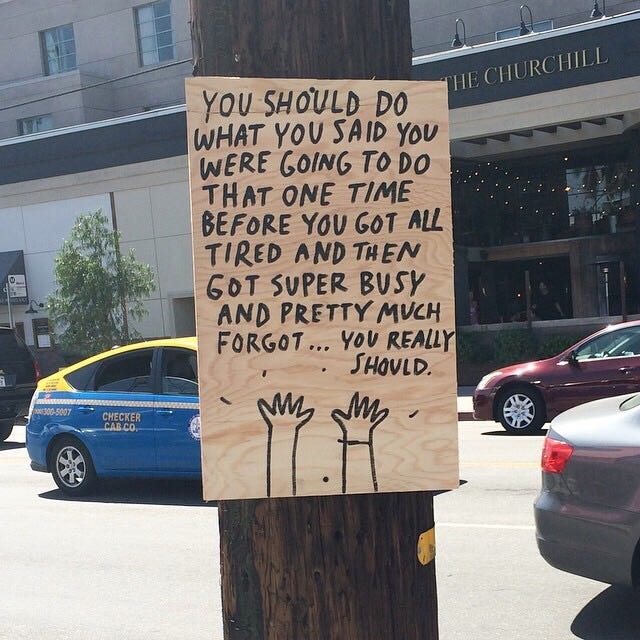 THE CHURCHILL
YOU SHOULD DO
WHAT YOU SAID YOU
WERE GOING TO DO
THAT ONE TIME
BEFORE YOU GOT ALL
TIRED AND THEN
GOT SUPER BUSY
AND PRETTY MUCH
FORGOT... YOU REALLY
SHOULD.
300-5007
CHECKER
CAB CO.